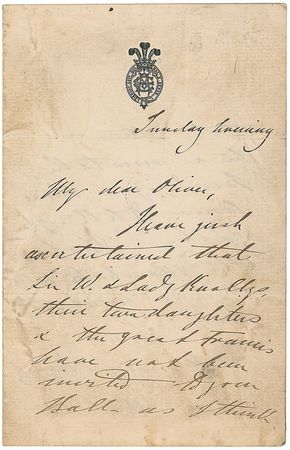 Sunday evening
My dear Oliver,
I have just
ascertained that
Sir W. & Lady Knollys,
their two daughters
& the great Francis
have not been
invited to your
Ball as I think